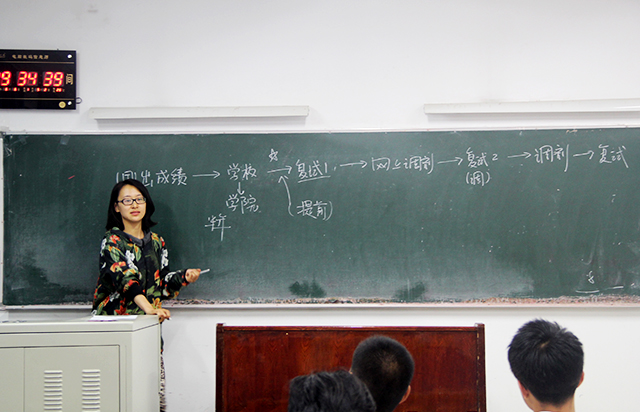 9 34 39 间
1月出成绩 → 学校 → 复试1 → 网上调剂 → 复试2 → 调剂 → 复试
学院 (提前) (调)